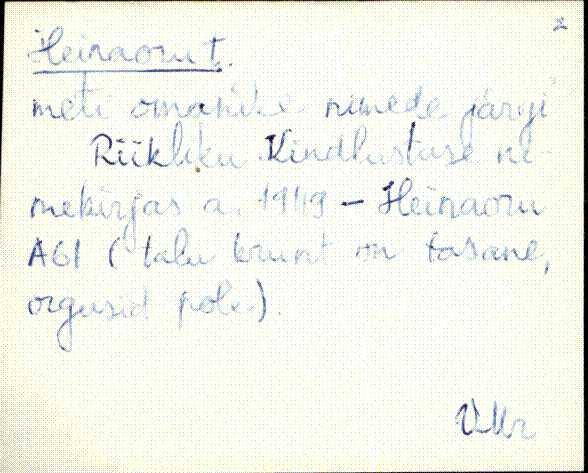 2
Heinaoru t.
meti omanike nimede järgi
Riikliku Kindlustuse ni
mekirjas a. 1949 - Heinaoru
A61 (talu krunt on tasane,
orgusid pole).
VMr